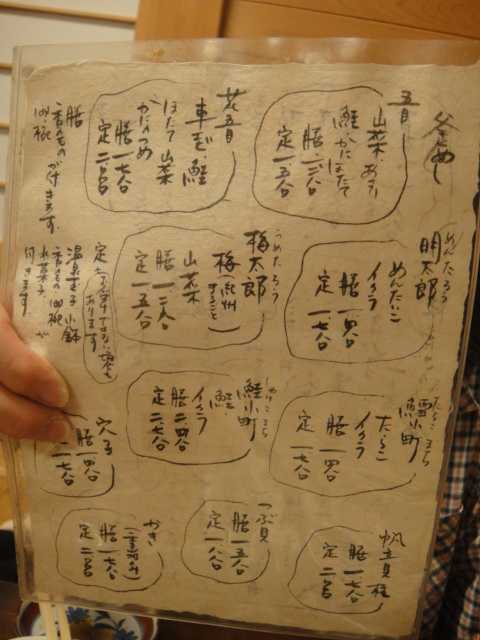 釜めし
五目
山菜 あさり
鮭 かに ほたて
膳 一、二〇〇
定 一、五〇〇
花五目
車えび、鮭
ほたて 山菜
かにのつめ
膳 一、七〇〇
定 二、〇〇〇
膳
香のものが付きます
明太郎
めんたろう
めんたいこ
イクラ
膳 一、四〇〇
定 一、七〇〇
梅太郎
うめたろう
梅(紀州まるごと)
山菜
膳 一、二〇〇
定 一、五〇〇
定
あります
温泉玉子 小鉢
香のもの 吸椀
水菓子
付きます
鱈小町
たらこまち
たらこ
イクラ
膳 一、四〇〇
定 一、七〇〇
鮭小町
しゃけこまち
鮭
イクラ
膳 二、四〇〇
定 二、七〇〇
穴子
膳 一、四〇〇
一、七〇〇
帆立貝柱
膳 一、七〇〇
定 二、〇〇〇
つぶ貝
膳 一、五〇〇
定 一、八〇〇
かき
膳 一、七〇〇
定 二、〇〇〇